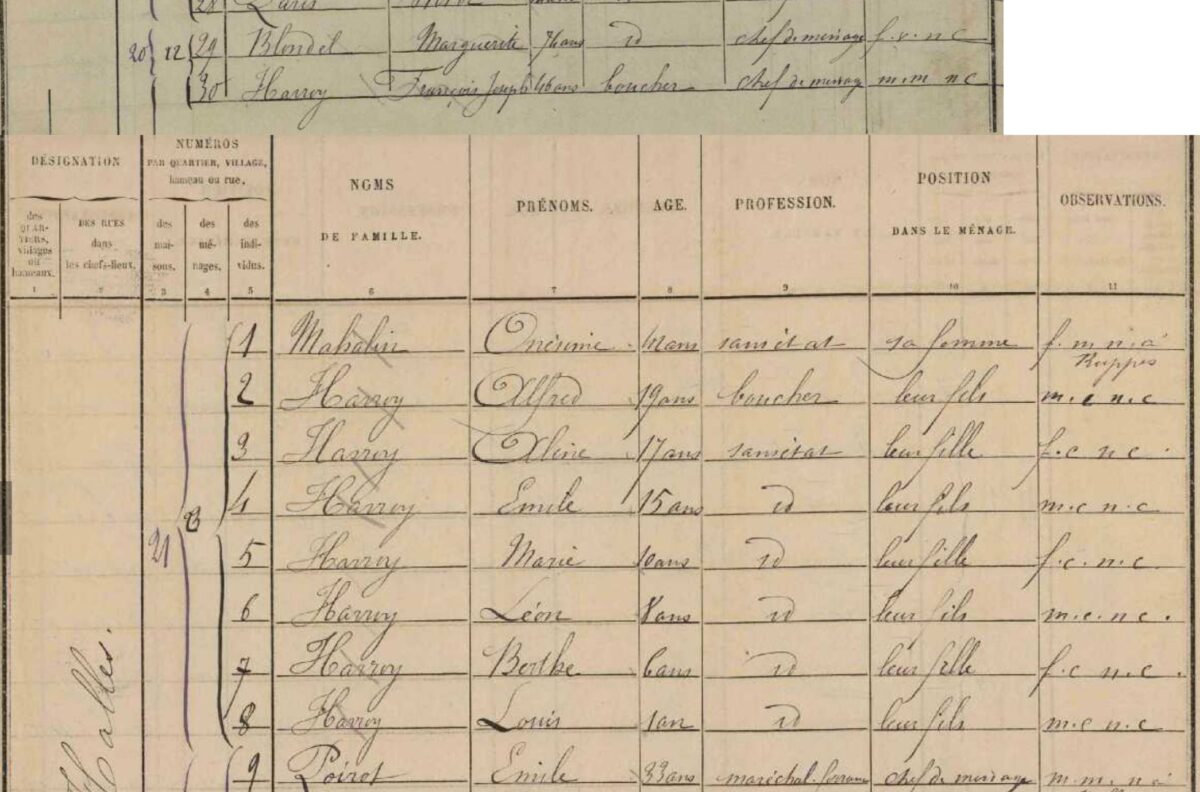 28 Paris
20 12 29 Blondel Marguerite 74 ans id chef de menage f. v. n c
30 Harroy François Joseph 46 ans boucher chef de menage m. m n c
DÉSIGNATION
des QUARTIERS, villages ou hameaux.
DES RUES dans les chefs-lieux.
NUMÉROS
PAR QUARTIER, VILLAGE, hameau ou rue.
des maisons.
des ménages.
des individus.
NOMS DE FAMILLE.
PRÉNOMS.
AGE.
PROFESSION.
POSITION DANS LE MÉNAGE.
OBSERVATIONS.
1 2 3 4 5 6 7 8 9 10 11
1 Mahalin Onésime ans sans état sa femme f. m n. à
Ruppes
2 Harroy Alfred 19 ans boucher leur fils m. c n. c
3 Harroy Aline 17 ans sans état leur fille f. c n c
4 Harroy Emile 15 ans id leur fils m. c n c
21 5 Harroy Marie 10 ans id leur fille f. c. n. c
6 Harroy Léon 8 ans id leur fils m. c. n c.
7 Harroy Berthe 6 ans id leur fille f. c n c.
8 Harroy Louis 1 an id leur fils m. c n c
Halles.
9 Poirot Emile 33 ans maréchal ferrant chef de menage m m. n à